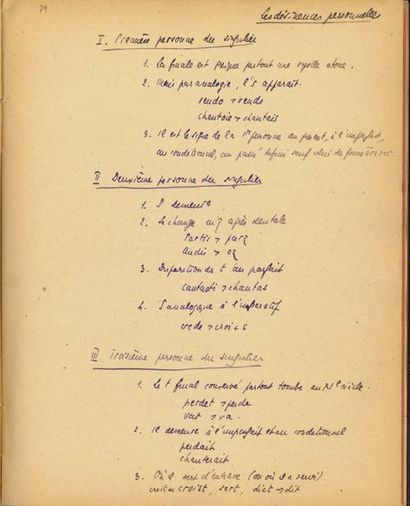 79
les désinences personnelles
I. Première personne du singulier
1. La finale est presque partout une voyelle atone.
2. Mais par analogie, l's apparaît.
vendo > vends
chantoie > chantais
3. Il est le signe de la 1re personne au présent, à l'imparfait,
au conditionnel, au passé défini sauf
II Deuxième personne du singulier
1. S demeure
2. Se change en z après dentale
Partis > parz
audis > oz
3. Disparition du t au parfait
cantasti > chantas
4. S analogique à l'impératif
crede > crois
III Troisième personne du singulier
1. Le t final conservé partout tombe au XIe siècle.
perdet > perde
vat > va.
2. Il demeure à l'imparfait et au conditionnel
perdait
chanterait
3. Où il sert d'entrave (ou où il a servi)
croist, sert, dict > dit